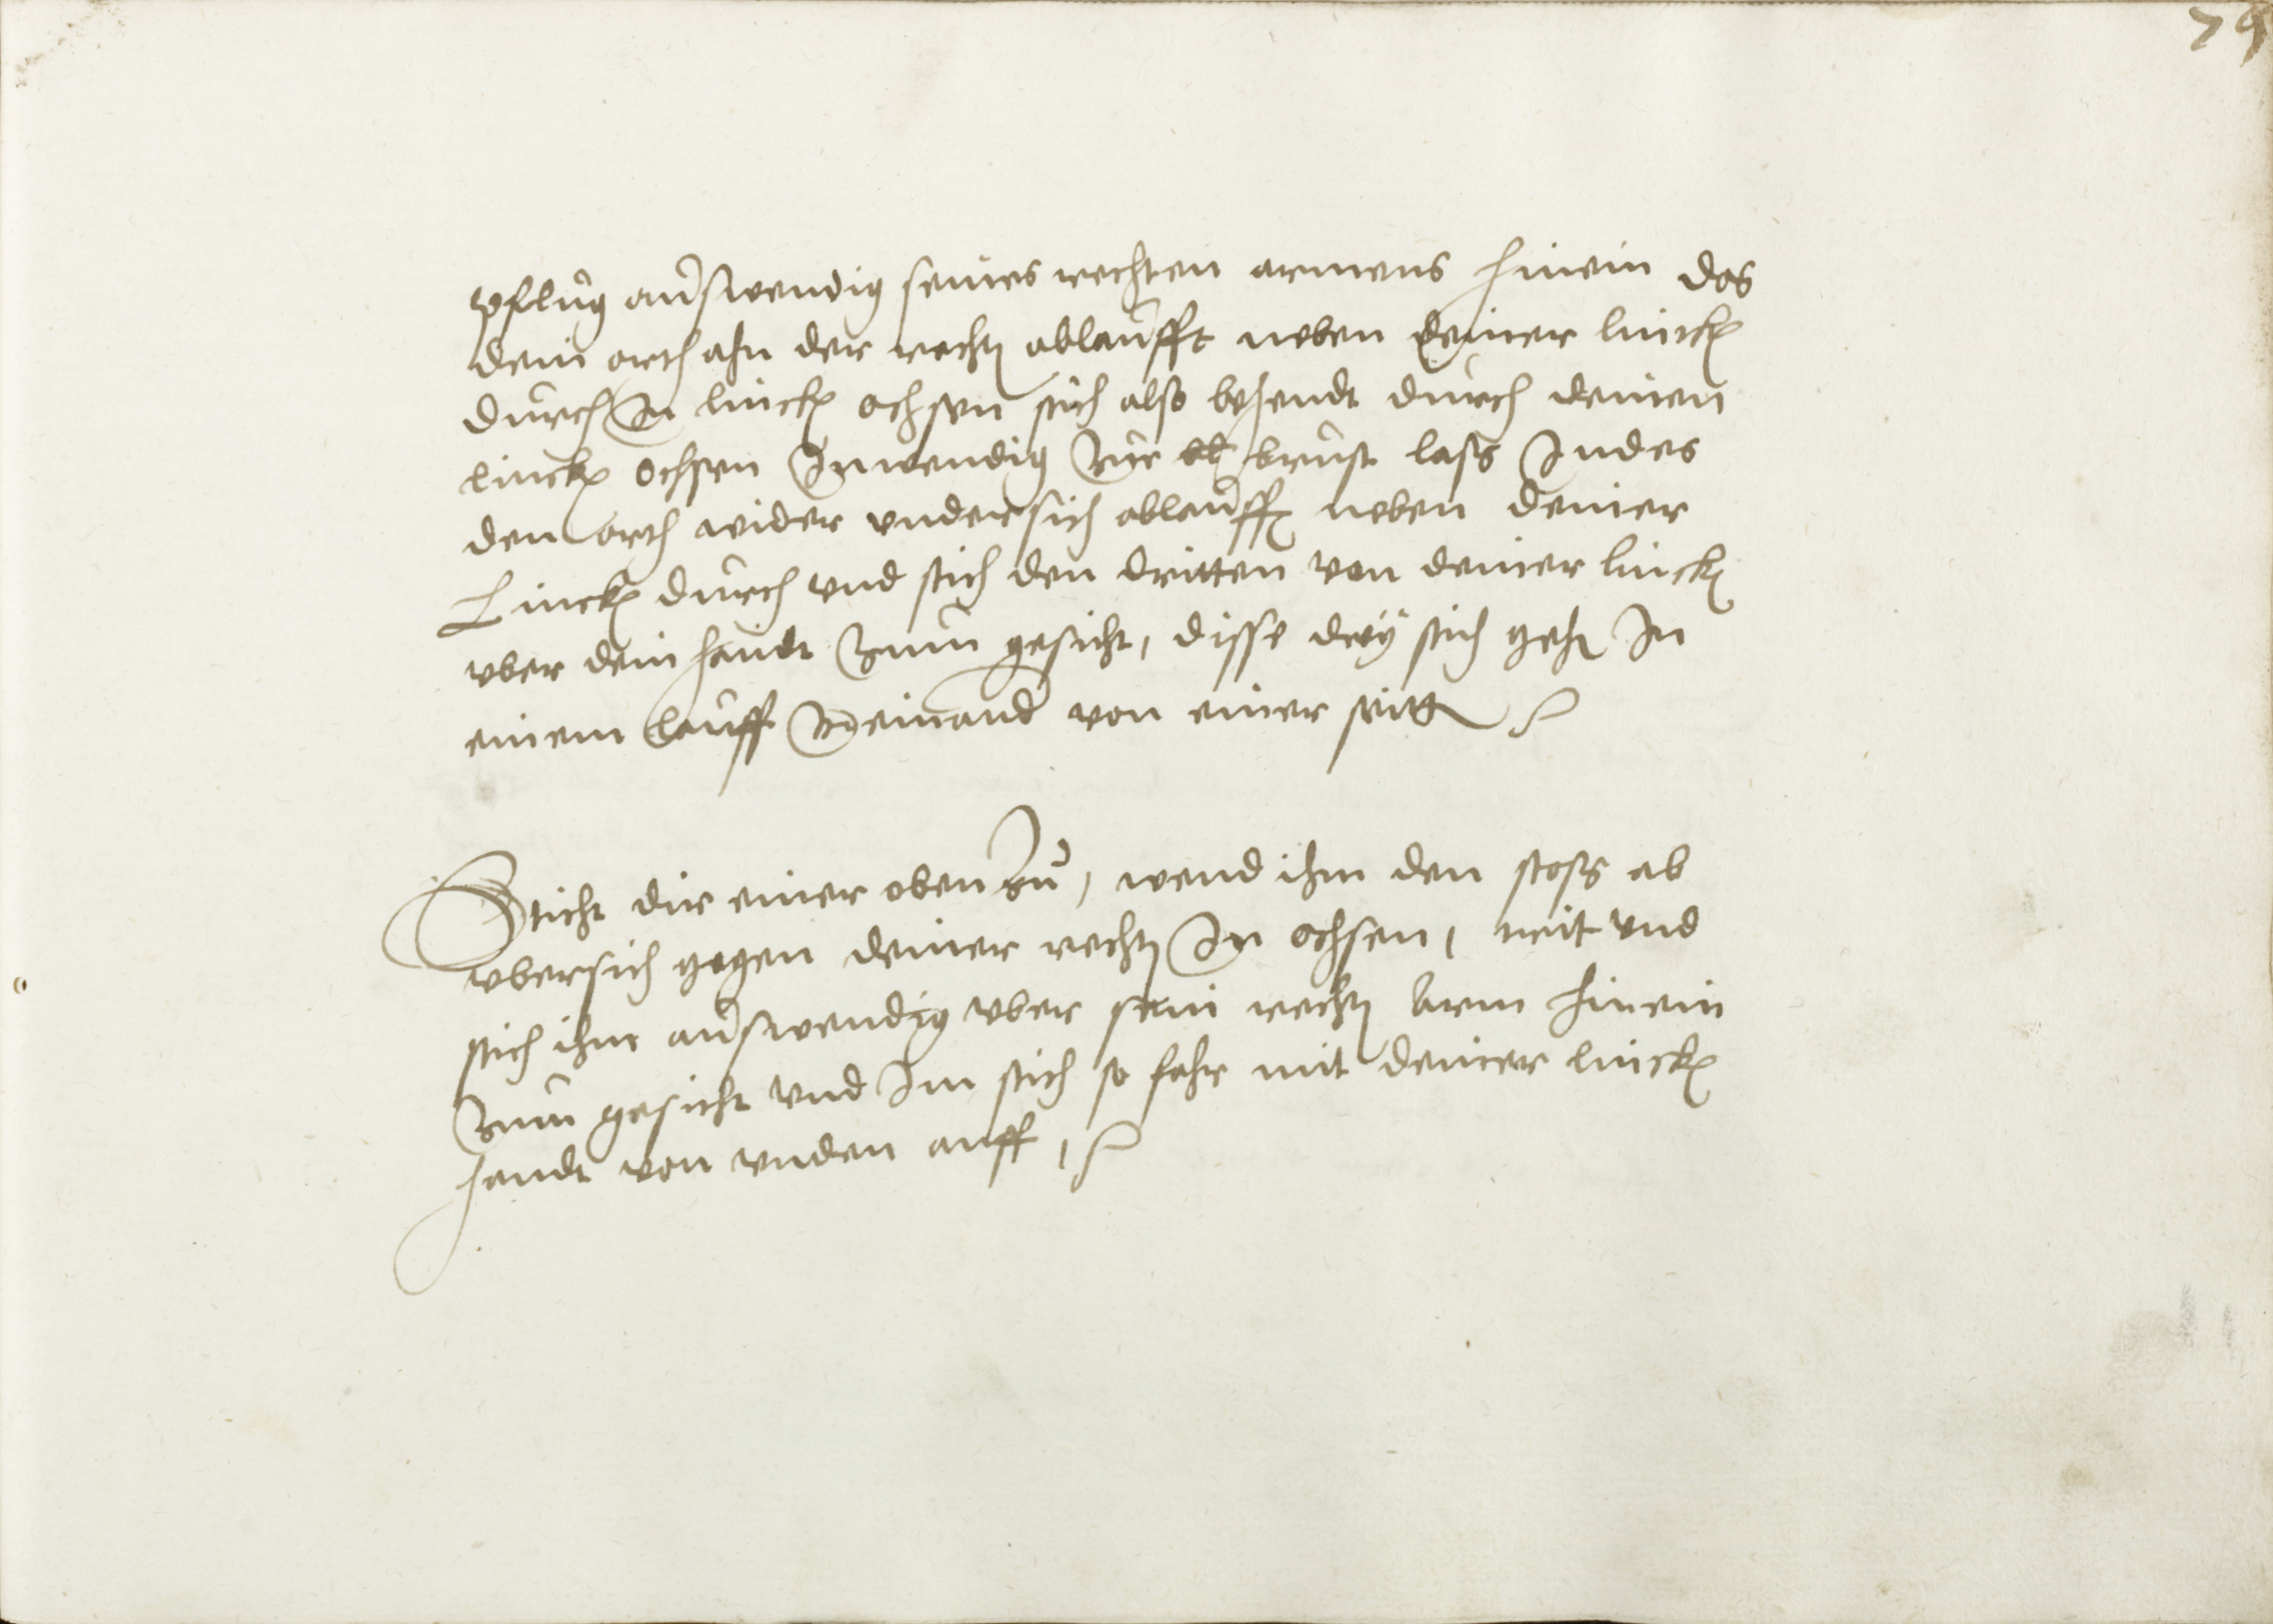 79
pflug auswendig seines rechten armens hinein das
dein orth ahn der recht ablaufft neben deiner linck
durch In linck ochsen stich also behendt durch deinen
linck ochsen Inwendig zur brust lass Indes
den orth wider undersich ablauff neben deiner
Linck durch und stich den dritten von deiner linck
uber dein handt zum gesicht, disse drÿ stich geh In
einem lauff einand von einer seitt
Sticht dir einer oben zu, wend ihm den stoss ab
ubersich gegen deiner recht In ochsen, trit und
stich ihm auswendig uber sein recht Arm hinein
zum gesicht und Im stich so fahr mit deiner linck
handt von unden auff,